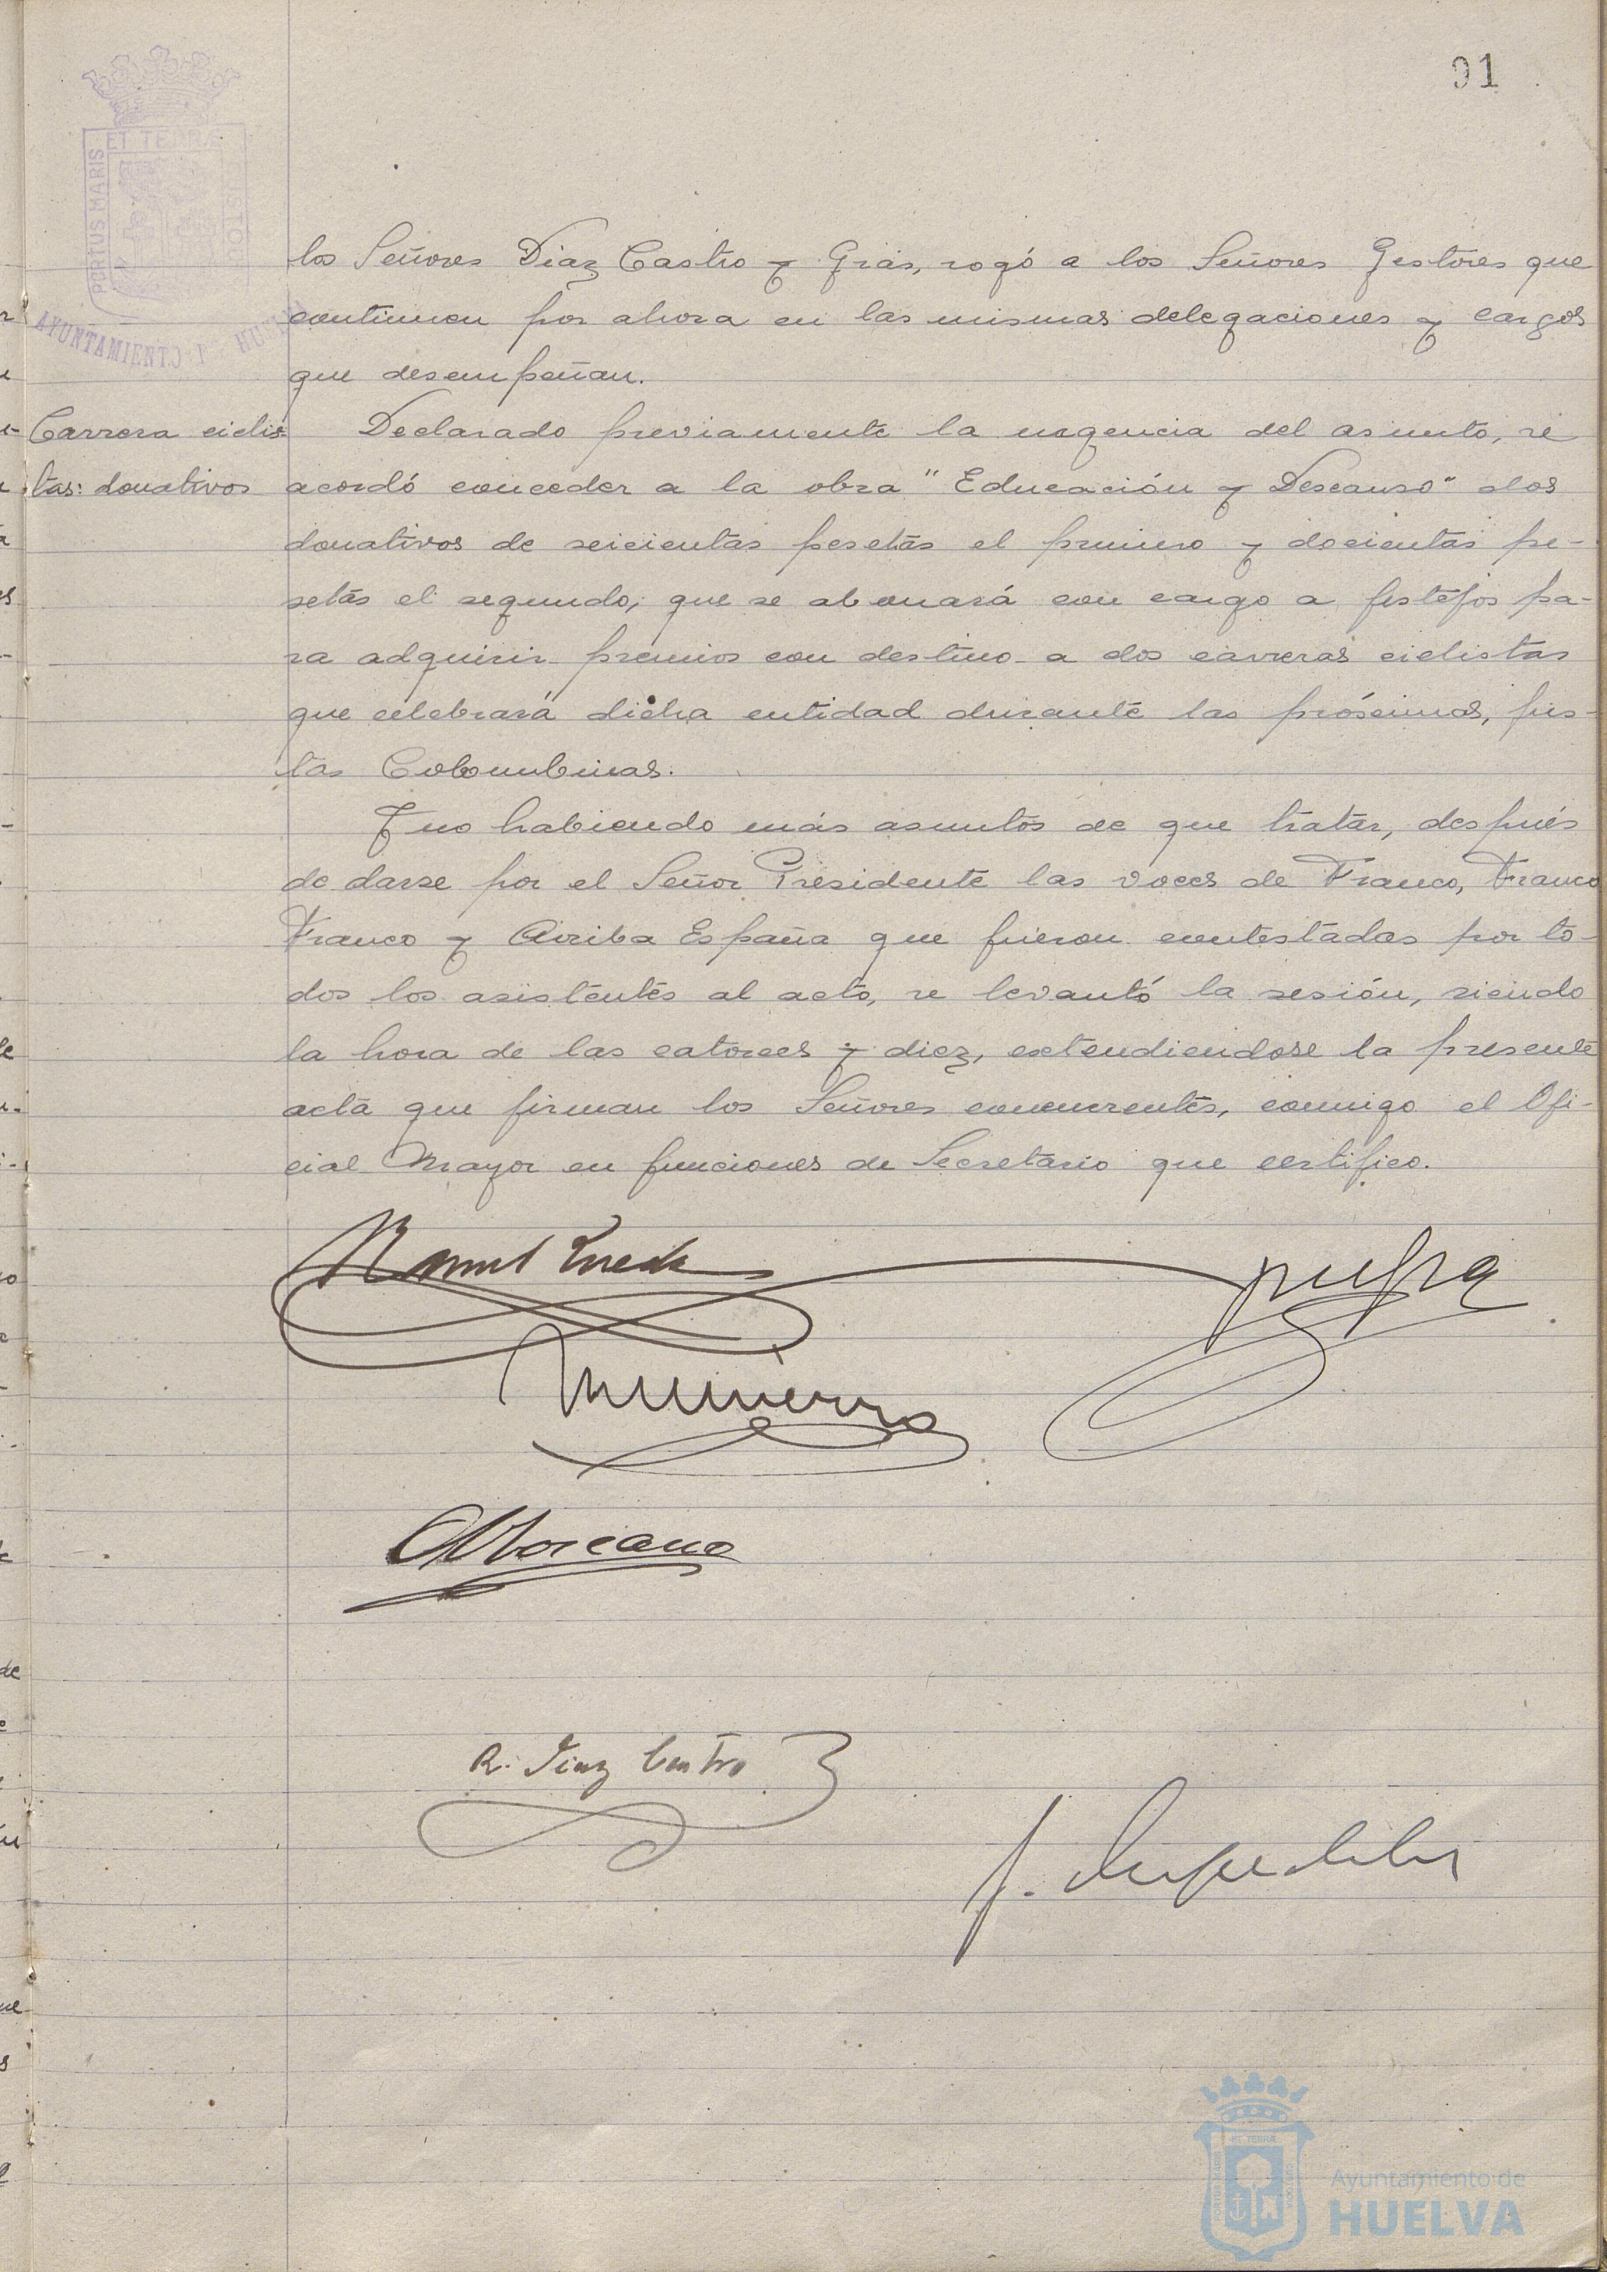 91
ET TERRAE
PORTUS MARIS
CUSTODIA
AYUNTAMIENTO DE HUELVA
los Señores Diaz Castro y Grás, rogó a los Señores Gestores que
continuen por ahora en las mismas delegaciones y cargos
que desempeñan.
Carrera ciclis-
tas: donativos
Declarado previamente la urgencia del asunto, se
acordó conceder a la obra "Educación y Descanso" dos
donativos de seicientas pesetas el primero y docientas pe-
setas el segundo, que se abonará con cargo a festejos pa-
ra adquirir premios con destino a dos carreras ciclistas
que celebrará dicha entidad durante las próximas, fies-
tas Colombinas.
Y no habiendo más asuntos de que tratar, después
de darse por el Señor Presidente las voces de Franco, Franco
Franco y Arriba España que fueron contestadas por to-
dos los asistentes al acto, se levantó la sesión, siendo
la hora de las catorces y diez, extendiendose la presente
acta que firman los Señores concurrentes, conmigo el Ofi-
cial Mayor en funciones de Secretario que certifico.
R. Diaz Castro
Ayuntamiento de
HUELVA